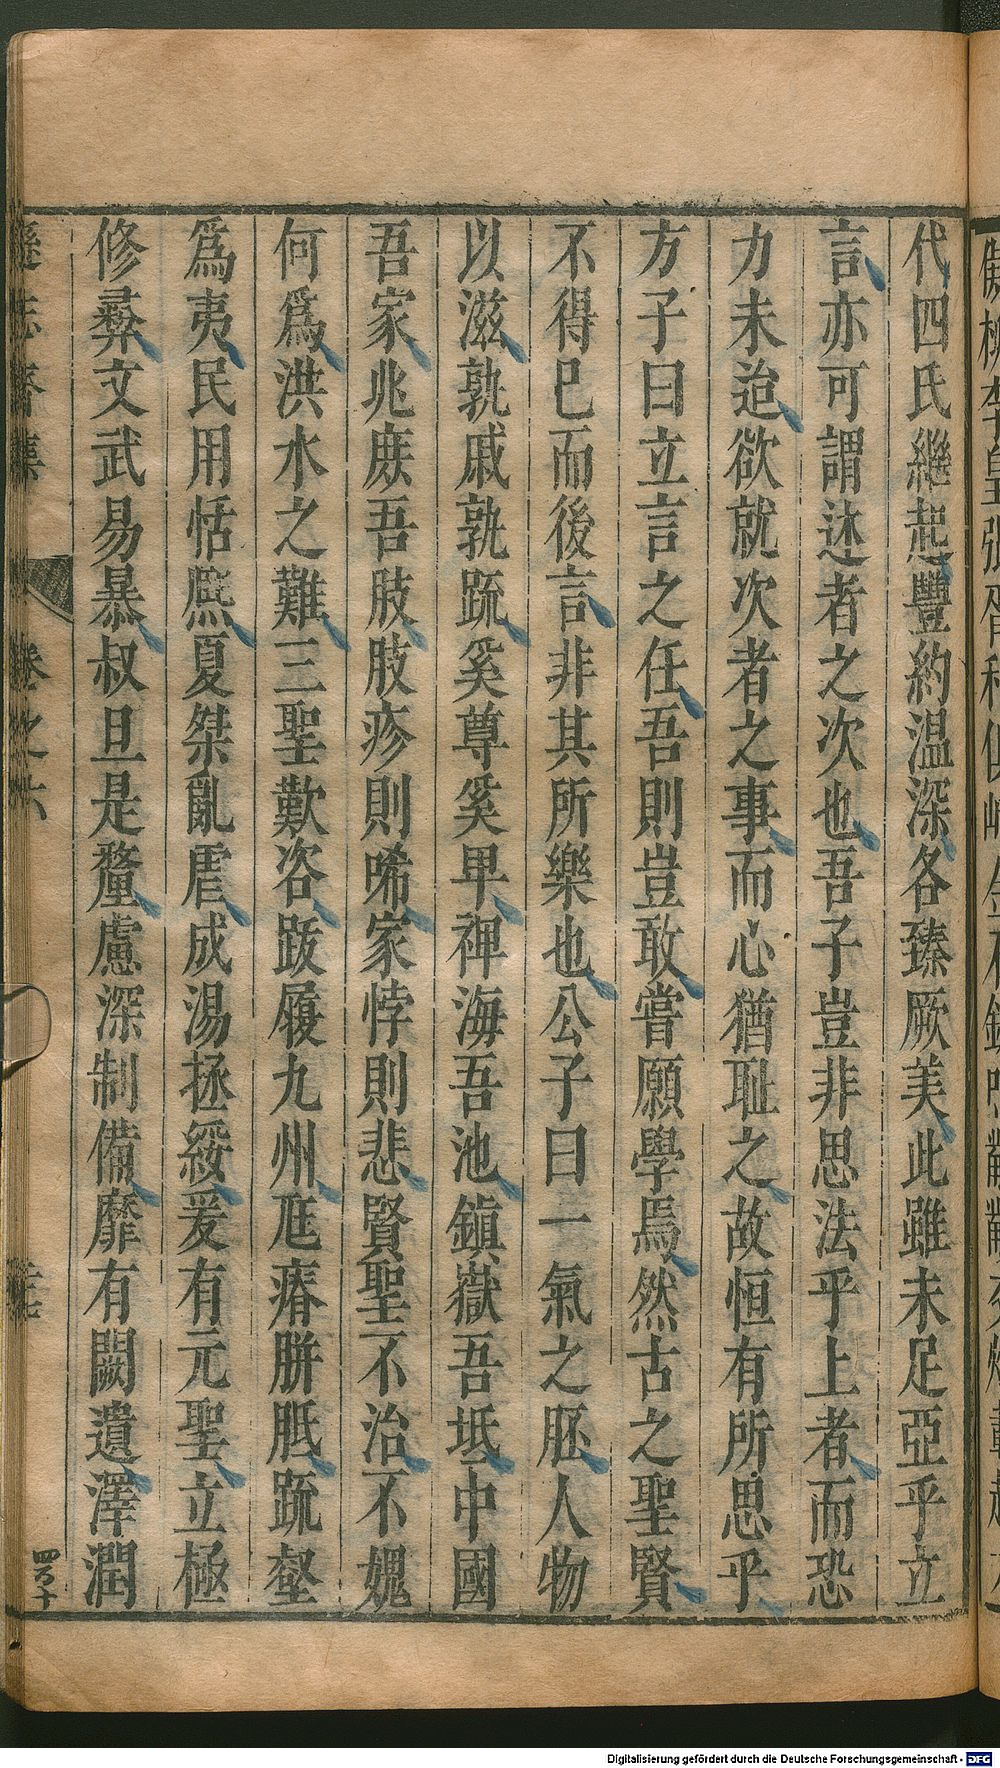 代四氏繼起豐約溫深各臻厥美此雖未足亞乎立
言亦可謂述者之次也吾子豈非思法乎上者而恐
力未迨欲就次者之事而心猶耻之故恒有所思乎
方子曰立言之任吾則豈敢嘗願學焉然古之聖賢
不得已而後言非其所樂也公子曰一氣之胚人物
以滋孰戚孰疏奚尊奚卑裨海吾池鎮嶽吾坻中國
吾家兆庶吾肢肢疹則唏家悖則悲賢聖不治不媿
何爲洪水之難三聖歎咨跋履九州尫瘠胼胝疏壑
爲夷民用恬熈夏桀亂虐成湯拯綏爰有元聖立極
修彛文武易暴叔旦是釐慮深制備靡有闕遺澤潤
遜志齋集
卷之六
四百十
Digitalisierung gefördert durch die Deutsche Forschungsgemeinschaft - DFG